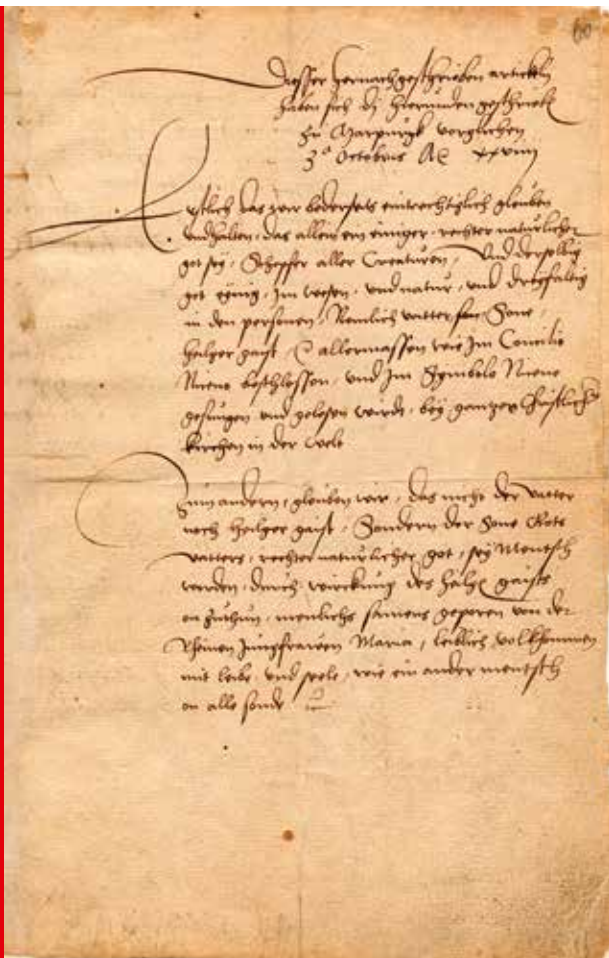 60
Dysser hernachgeschrieben artickeln
haben sich dj hierunden geschriebn
zu Marpurgk verglichen
3ª Octobris Aº xxviiij
Erstlich das wir bederseits eintrechtiglich gleuben
und halten, das allein ein einiger, rechter naturlicher
got sey, Schepffer aller Creaturen, Und derselbig
got eynig, Im wesen, und natur, und dryfaltig
in den personen, Nemlich vatter Sone,
halger gaist, allermassen wie Im Concilio
Niceno beschlossen, und Im Symbolo Niceno
gesungen und gelesen wurdt, bey gantzer Christlicher
kirchen in der welt
Zum andern, gleuben wir, das nicht der vatter
noch heilger gaist, Sondern der Sone Gots
vatters, rechter naturlicher got, sey Mentsch
worden, durch wirckung des halgen gaists
on zuthun, menlichs samens geporen von der
Rheinen Jungfrawen Maria, leiblich volkhommen
mit leibe und seele, wie ein ander mentsch
on alle sonde